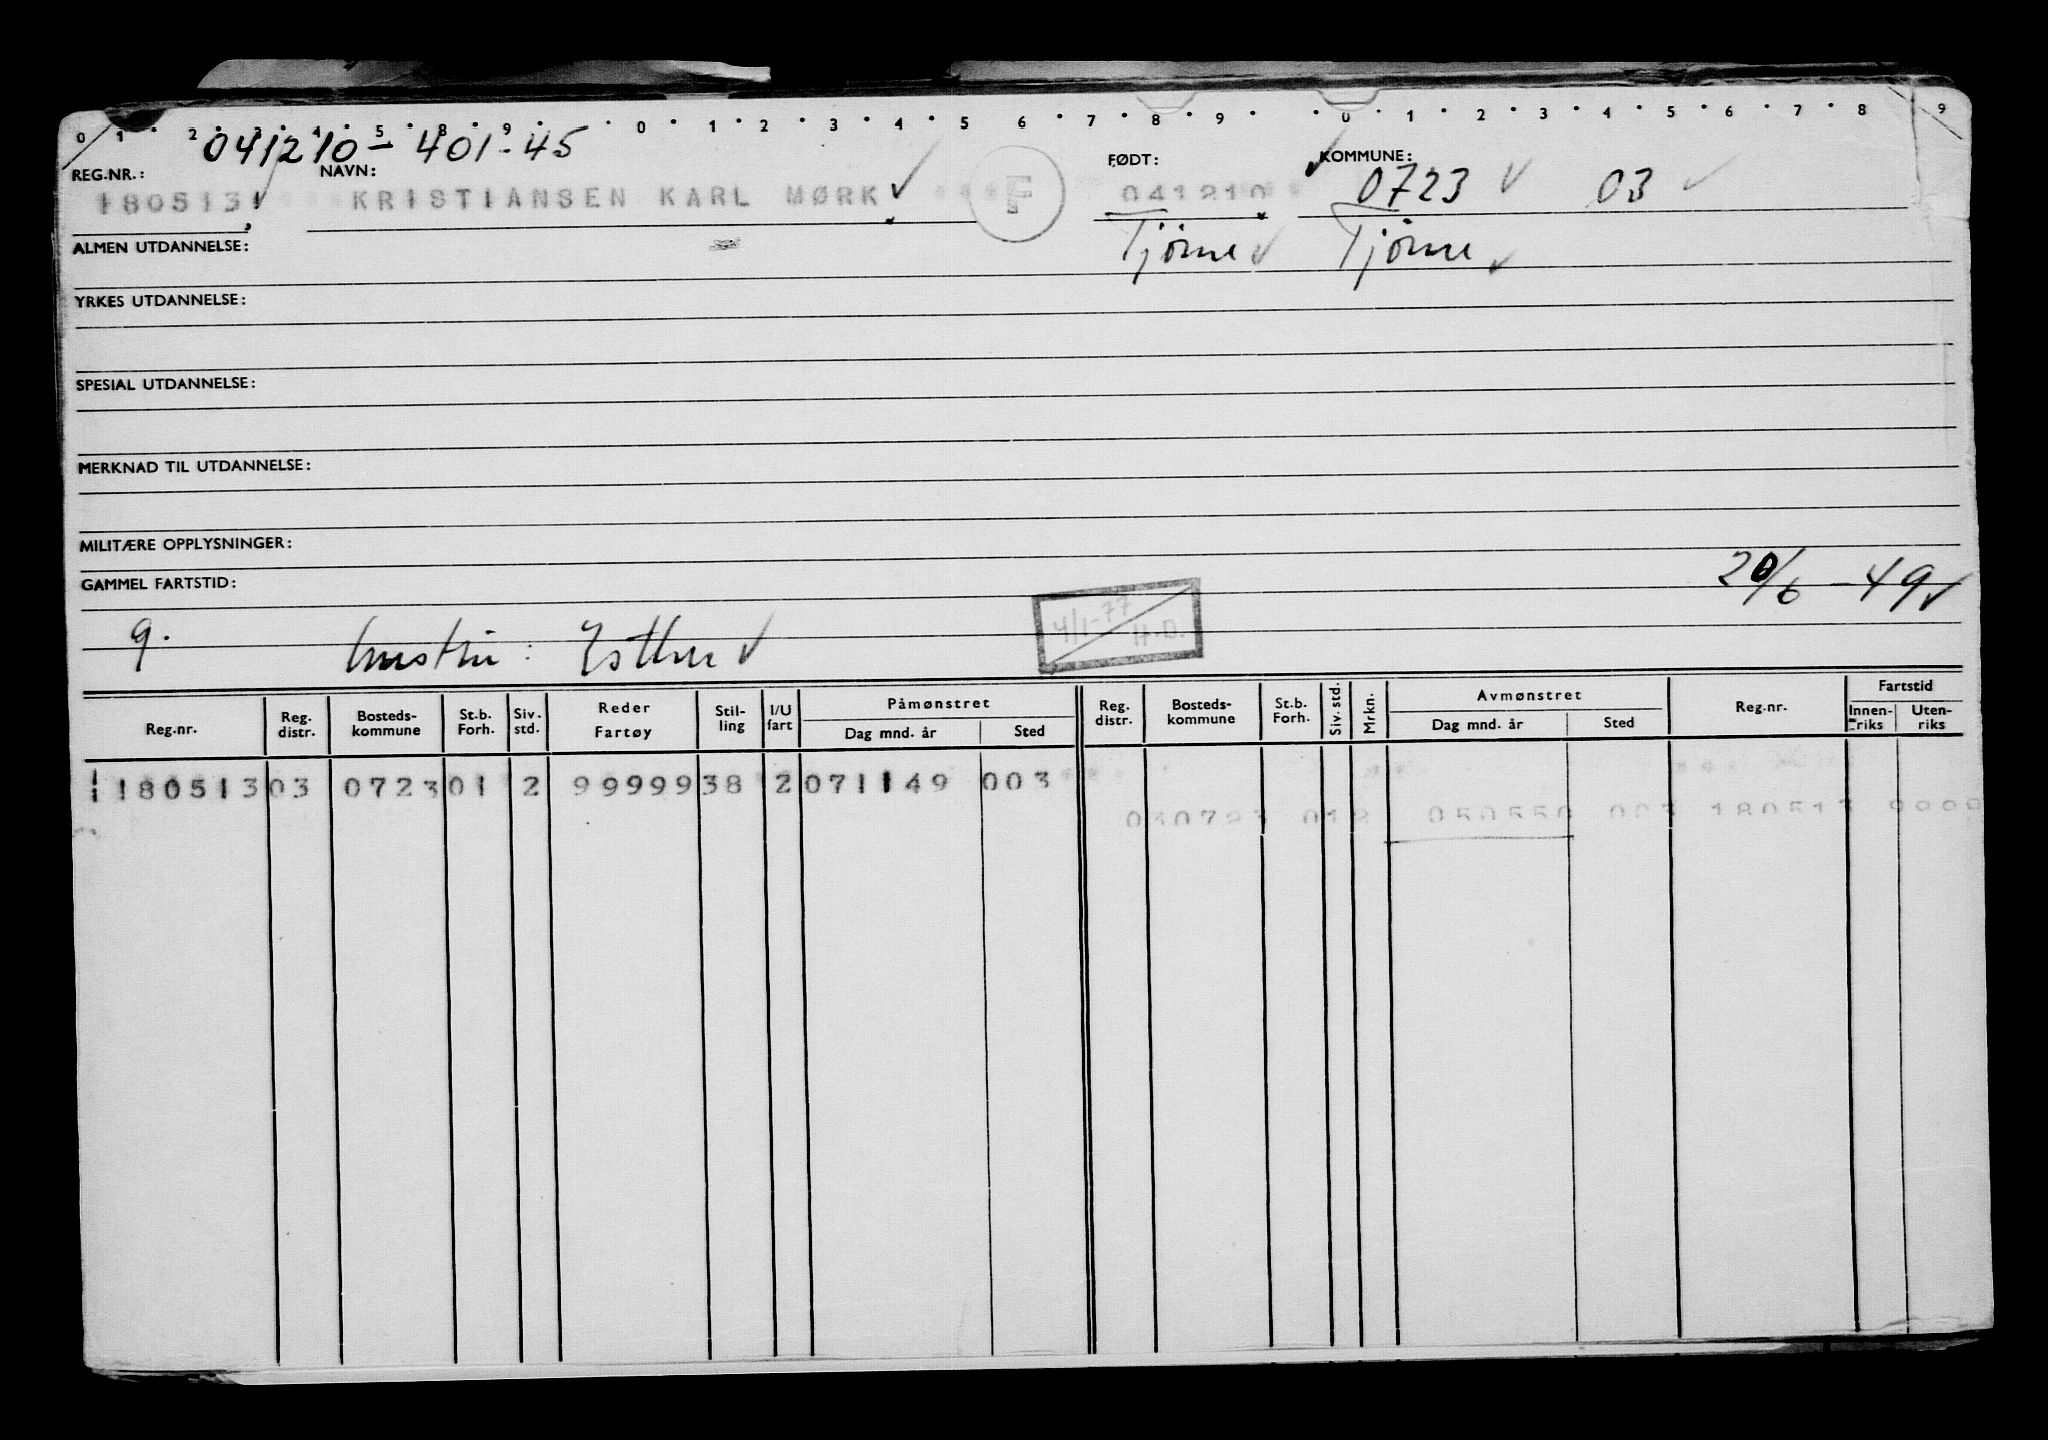 0 1 2 3 4 5 8 9 0 1 2 3 4 5 6 7 8 9 0 1 2 3 4 5 6 7 8 9
041210 - 401-45
REG.NR.: NAVN: FØDT: KOMMUNE:
180513 KRISTIANSEN KARL MØRK F 041210 0723 03
ALMEN UTDANNELSE: Tjöme Tjöme
YRKES UTDANNELSE:
SPESIAL UTDANNELSE:
MERKNAD TIL UTDANNELSE:
MILITÆRE OPPLYSNINGER:
GAMMEL FARTSTID: 20/6 - 49
4/1-77
H.D.
g. hustru: Esther
Reg.nr. Reg. distr. Bosteds-kommune St.b. Forh. Siv. std. Reder Fartøy Stil-ling I/U fart Påmønstret Dag mnd. år Sted Reg. distr. Bosteds-kommune St.b. Forh. Siv. std. Mrkn. Avmønstret Dag mnd. år Sted Reg.nr. Fartstid Innen-riks Uten-riks
180513 03 0723 01 2 99999 38 2 071149 003
030723 012 050550 003 180513 9999